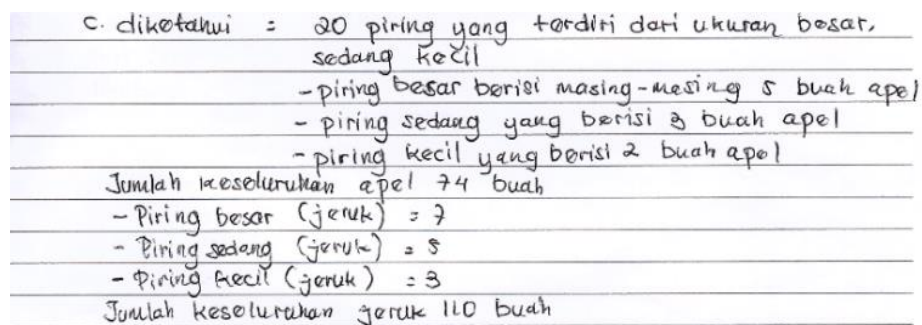 C. diketahui : 20 piring yang terdiri dari ukuran besar,
sedang kecil
- piring besar berisi masing-masing 5 buah apel
- piring sedang yang berisi 3 buah apel
- piring kecil yang berisi 2 buah apel
Jumlah keseluruhan apel 74 buah
- Piring besar (jeruk) = 7
- Piring sedang (jeruk) = 5
- Piring kecil (jeruk) = 3
Jumlah keseluruhan jeruk 110 buah